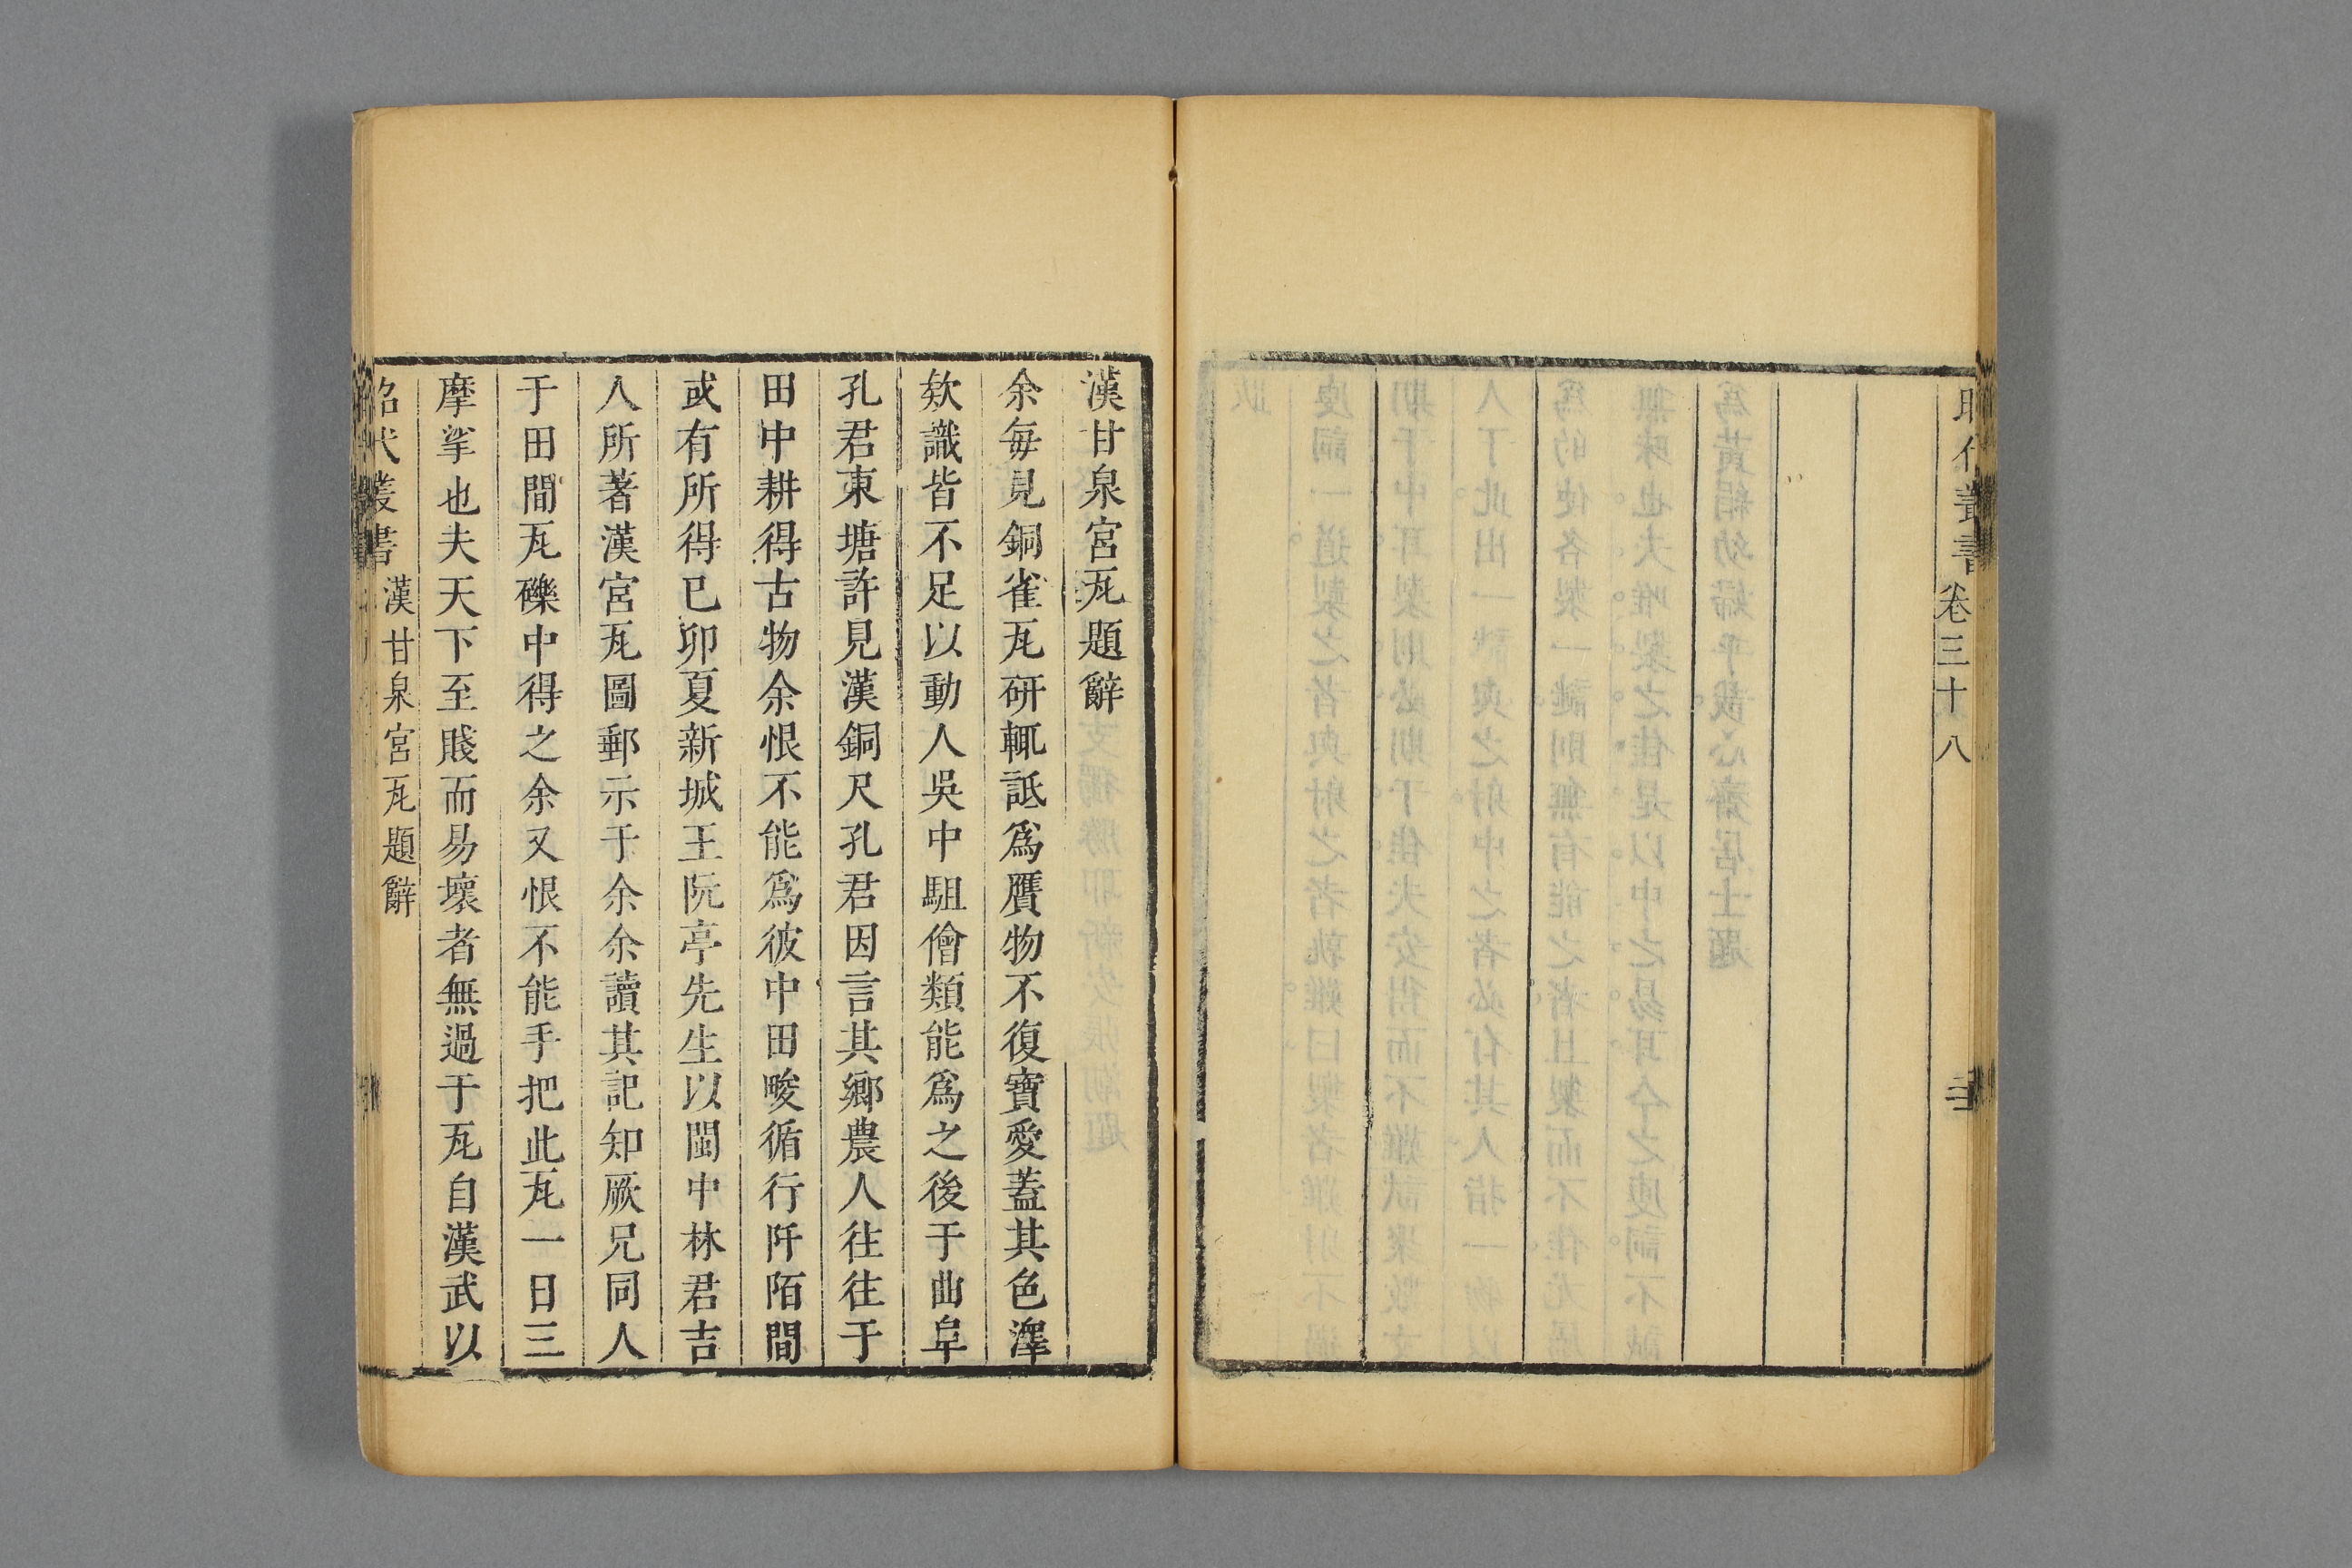 昭代叢書 卷三十八
漢甘泉宮瓦題辭
余每見銅雀瓦研輒詆爲贋物不復寶愛蓋其色澤
欵識皆不足以動人吳中駔儈類能爲之後于曲阜
孔君東塘許見漢銅尺孔君因言其鄉農人往往于
田中耕得古物余恨不能爲彼中田畯循行阡陌間
或有所得已卯夏新城王阮亭先生以閩中林君吉
人所著漢宮瓦圖郵示于余余讀其記知厥兄同人
于田間瓦礫中得之余又恨不能手把此瓦一日三
摩挲也夫天下至賤而易壞者無過于瓦自漢武以
昭代叢書 漢甘泉宮瓦題辭